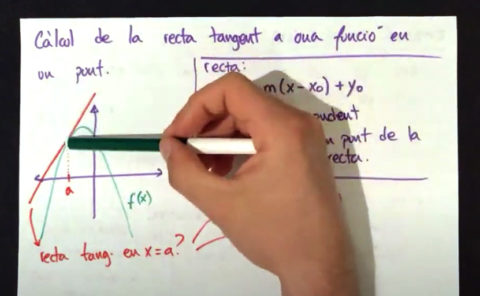 Càlcul de la recta tangent a una funció en
un punt.
recta:
m(x-x₀)+y₀
punt de la
recta.
a
f(x)
recta tang. en x=a?